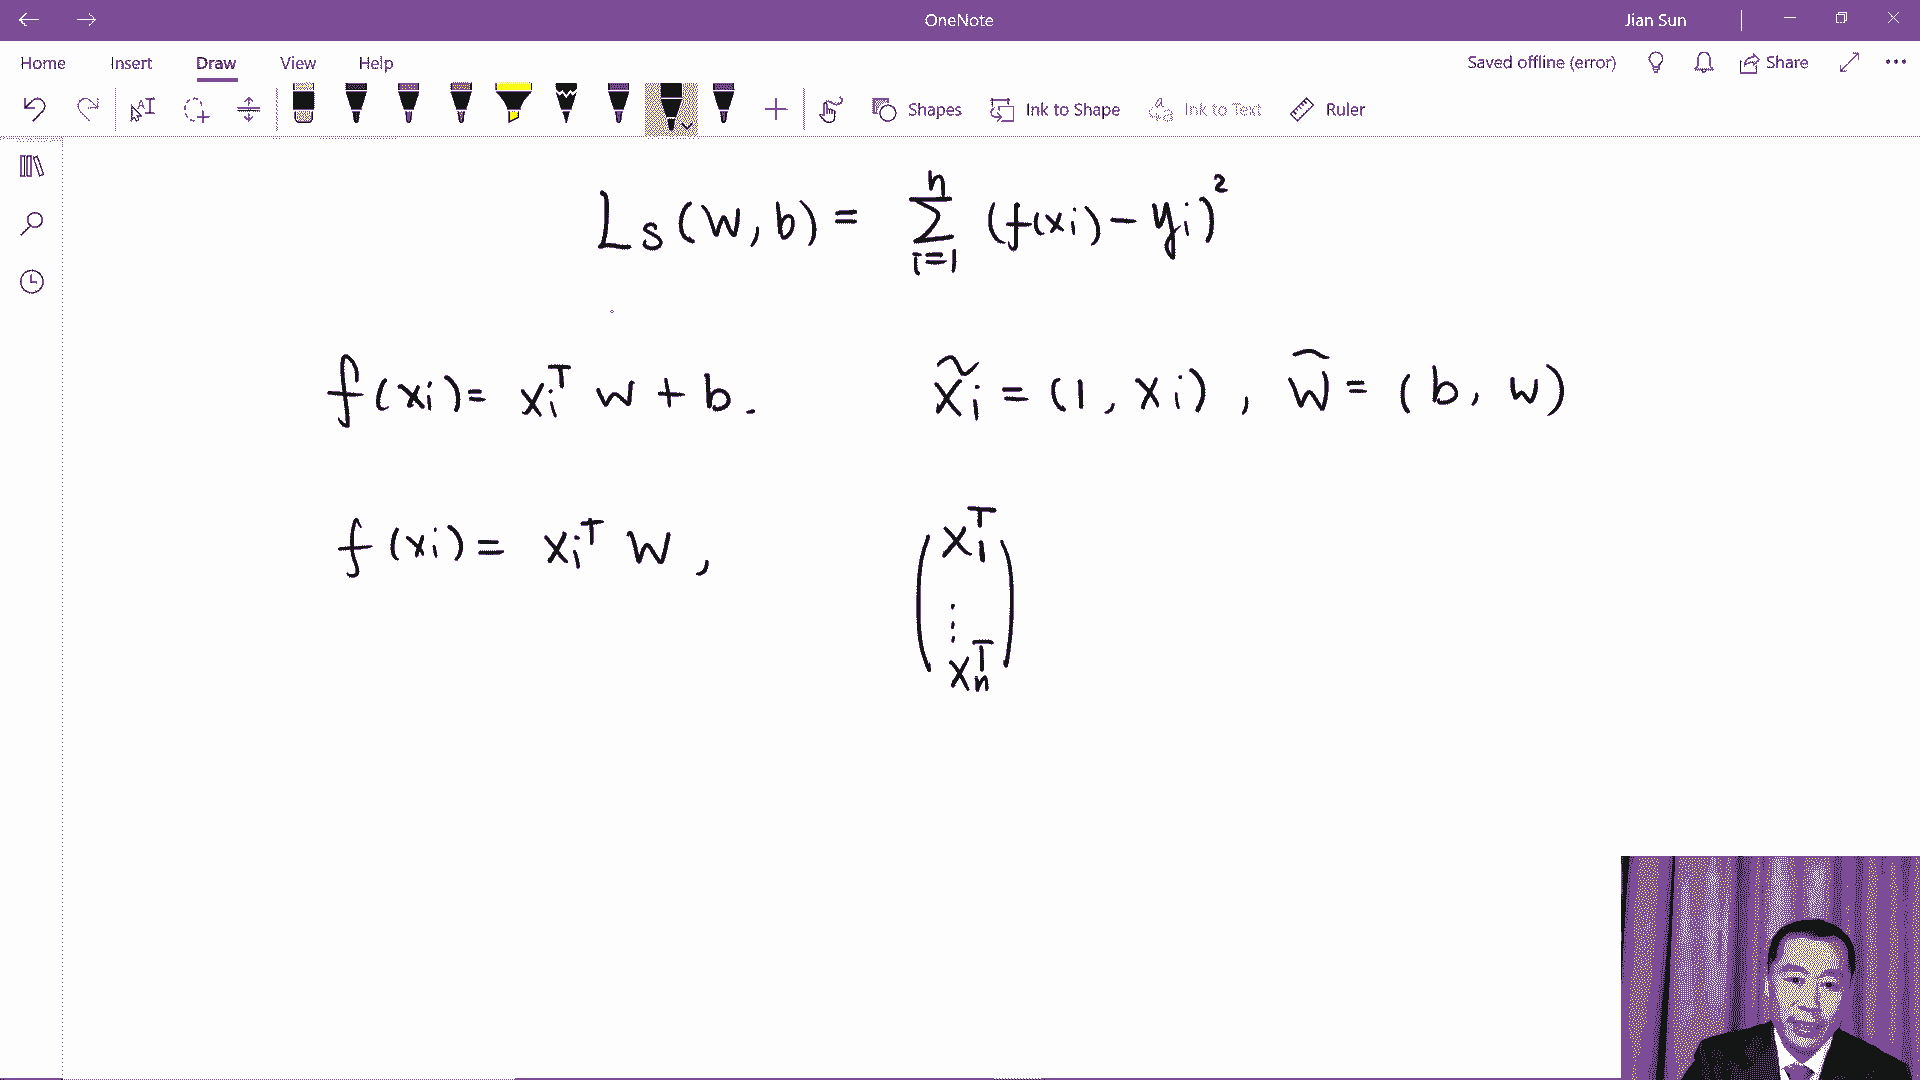 OneNote
Jian Sun
Home Insert Draw View Help
Saved offline (error) Share
Shapes Ink to Shape Ink to Text Ruler
L_S(W, b) = \sum_{i=1}^{n} (f(x_i) - y_i)^2
f(x_i) = x_i^T w + b. \tilde{x}_i = (1, x_i), \hat{w} = (b, w)
f(x_i) = x_i^T W, \begin{pmatrix} x_1^T \\ \vdots \\ x_n^T \end{pmatrix}